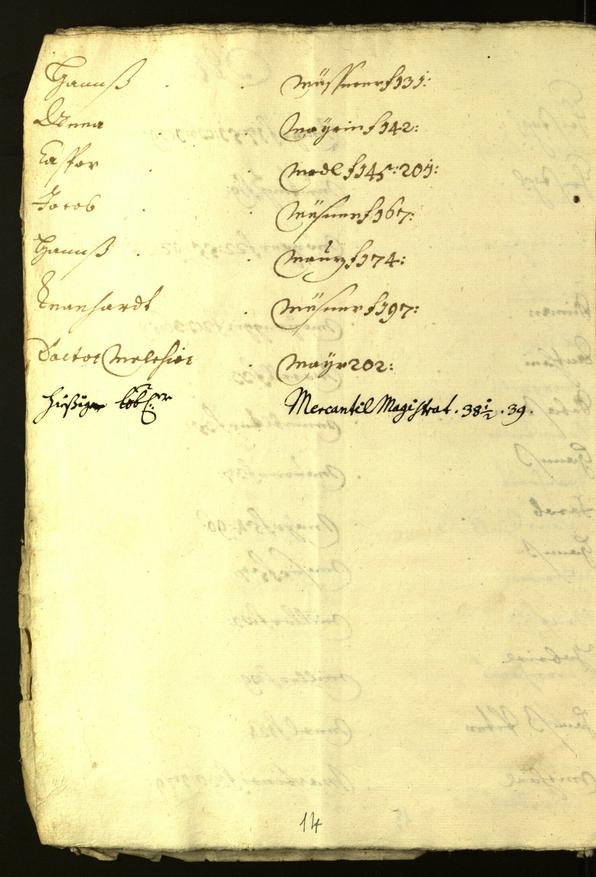 Hannß Mössner f 131:
Anna Mayrin f 142:
Caspar Medl f 145: 201:
Jacob Mösner f 167:
Hannß Maurz f 174:
Reinhardt Mösner f 197:
Doctor Melchior Mayr 202:
Hiesiger löbl: Mercantil Magistrat. 38½. 39.
14